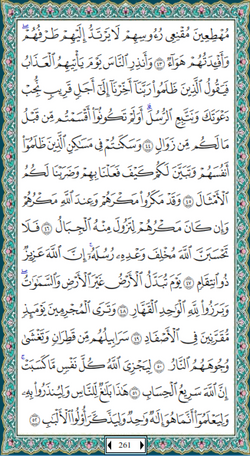 مُهْطِعِينَ مُقْنِعِى رُءُوسِهِمْ لَا يَرْتَدُّ إِلَيْهِمْ طَرْفُهُمْ ۖ
وَأَفْـِٔدَتُهُمْ هَوَآءٌ ٤٣ وَأَنذِرِ ٱلنَّاسَ يَوْمَ يَأْتِيهِمُ ٱلْعَذَابُ
فَيَقُولُ ٱلَّذِينَ ظَلَمُوا۟ رَبَّنَآ أَخِّرْنَآ إِلَىٰٓ أَجَلٍ قَرِيبٍ نُّجِبْ
دَعْوَتَكَ وَنَتَّبِعِ ٱلرُّسُلَ ۗ أَوَلَمْ تَكُونُوٓا۟ أَقْسَمْتُم مِّن قَبْلُ
مَا لَكُم مِّن زَوَالٍ ٤٤ وَسَكَنتُمْ فِى مَسَٰكِنِ ٱلَّذِينَ ظَلَمُوٓا۟
أَنفُسَهُمْ وَتَبَيَّنَ لَكُمْ كَيْفَ فَعَلْنَا بِهِمْ وَضَرَبْنَا لَكُمُ
ٱلْأَمْثَالَ ٤٥ وَقَدْ مَكَرُوا۟ مَكْرَهُمْ وَعِندَ ٱللَّهِ مَكْرُهُمْ
وَإِن كَانَ مَكْرُهُمْ لِتَزُولَ مِنْهُ ٱلْجِبَالُ ٤٦ فَلَا
تَحْسَبَنَّ ٱللَّهَ مُخْلِفَ وَعْدِهِۦ رُسُلَهُۥٓ ۗ إِنَّ ٱللَّهَ عَزِيزٌ
ذُو ٱنتِقَامٍ ٤٧ يَوْمَ تُبَدَّلُ ٱلْأَرْضُ غَيْرَ ٱلْأَرْضِ وَٱلسَّمَٰوَٰتُ ۖ
وَبَرَزُوا۟ لِلَّهِ ٱلْوَٰحِدِ ٱلْقَهَّارِ ٤٨ وَتَرَى ٱلْمُجْرِمِينَ يَوْمَئِذٍ
مُّقَرَّنِينَ فِى ٱلْأَصْفَادِ ٤٩ سَرَابِيلُهُم مِّن قَطِرَانٍ وَتَغْشَىٰ
وُجُوهَهُمُ ٱلنَّارُ ٥٠ لِيَجْزِىَ ٱللَّهُ كُلَّ نَفْسٍ مَّا كَسَبَتْ ۚ
إِنَّ ٱللَّهَ سَرِيعُ ٱلْحِسَابِ ٥١ هَٰذَا بَلَٰغٌ لِّلنَّاسِ وَلِيُنذَرُوا۟ بِهِۦ
وَلِيَعْلَمُوٓا۟ أَنَّمَا هُوَ إِلَٰهٌ وَٰحِدٌ وَلِيَذَّكَّرَ أُو۟لُوا۟ ٱلْأَلْبَٰبِ ٥٢
261